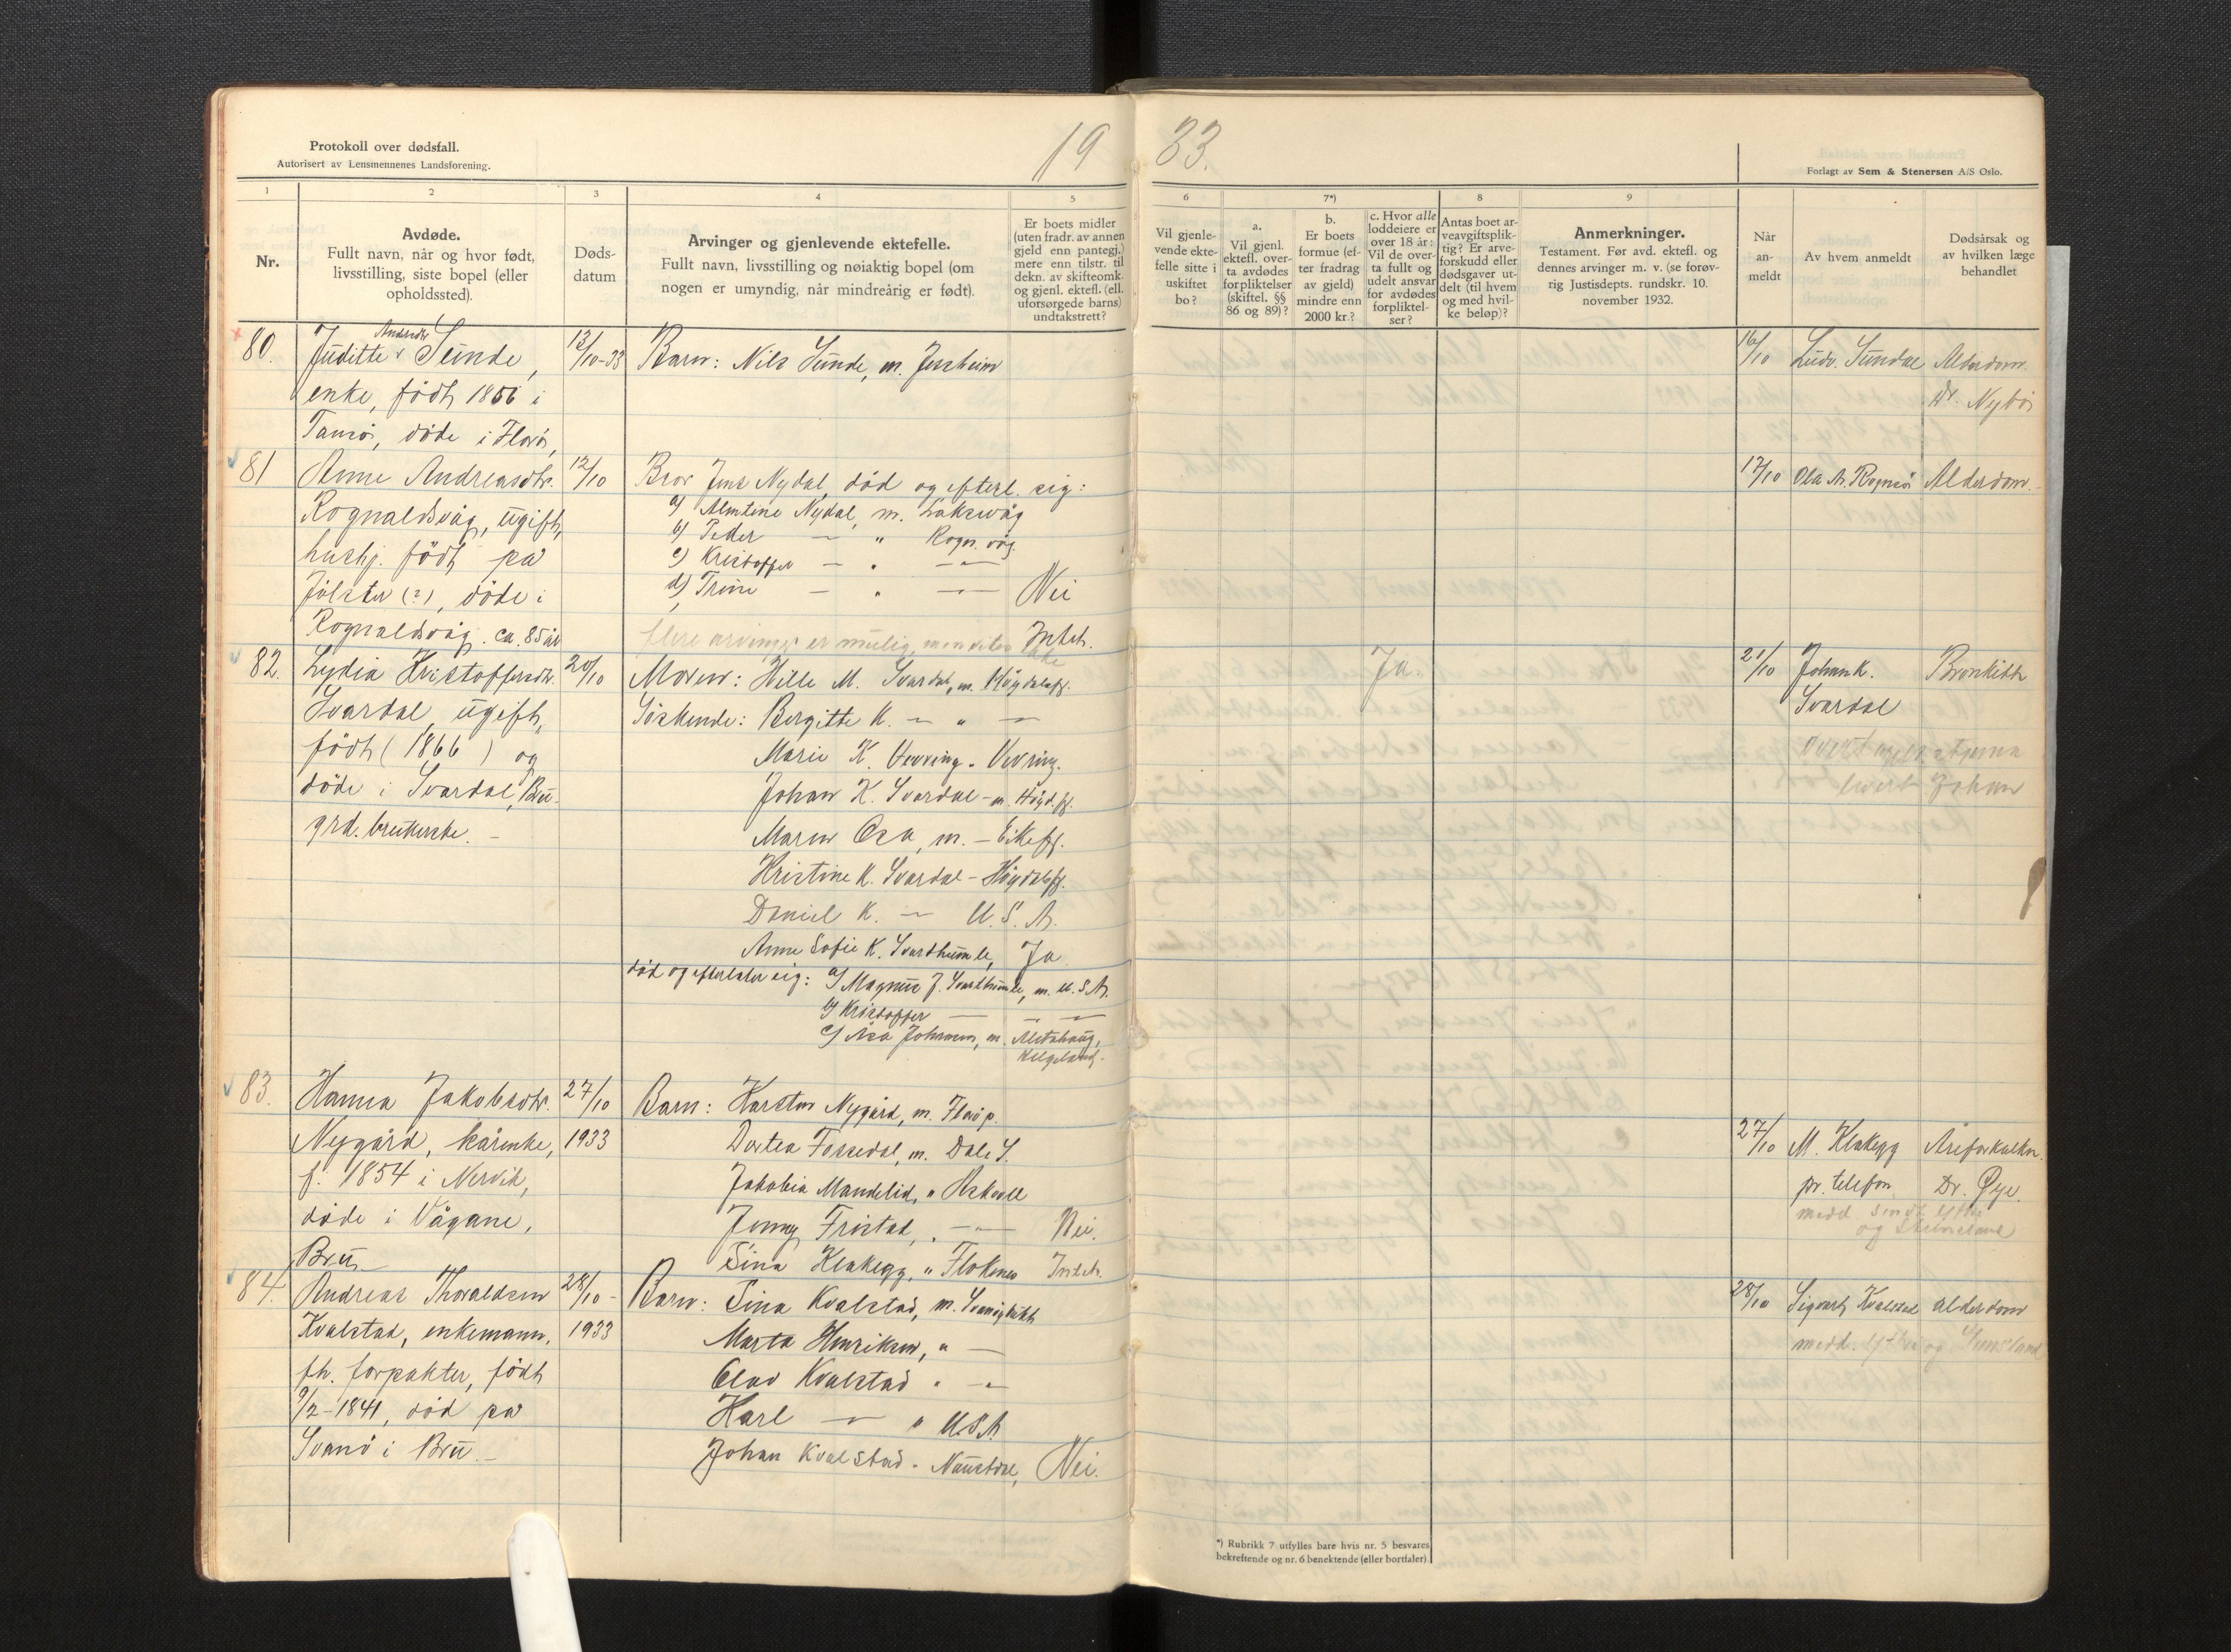 Protokoll over dødsfall.
Autorisert av Lensmennenes Landsforening.
19
33.
Forlagt av Sem & Stenersen A/S Oslo.
1
2
3
4
5
6
7*)
8
9
Nr.
Avdøde.
Fullt navn, når og hvor født,
livsstilling, siste bopel (eller
opholdssted).
Døds-
datum
Arvinger og gjenlevende ektefelle.
Fullt navn, livsstilling og nøiaktig bopel (om
nogen er umyndig, når mindreårig er født).
Er boets midler
(uten fradr. av annen
gjeld enn pantegj.)
mere enn tilstr. til
dekn. av skifteomk.
og gjenl. ektefl. (ell.
uforsørgede barns)
undtakstrett?
Vil gjenle-
vende ekte-
felle sitte i
uskiftet
bo?
a.
Vil gjenl.
ektefl. over-
ta avdødes
forpliktelser
(skiftel. §§
86 og 89)?
b.
Er boets
formue (ef-
ter fradrag
av gjeld)
mindre enn
2000 kr.?
c. Hvor alle
loddeiere er
over 18 år:
Vil de over-
ta fullt og
udelt ansvar
for avdødes
forpliktel-
ser?
Antas boet ar-
veavgiftsplik-
tig? Er arve-
forskudd eller
dødsgaver ut-
delt (til hvem
og med hvil-
ke beløp)?
Anmerkninger.
Testament. Før avd. ektefl. og
dennes arvinger m. v. (se forøv-
rig Justisdepts. rundskr. 10.
november 1932.
Når
an-
meldt
Av hvem anmeldt
Dødsårsak og
av hvilken læge
behandlet
80.
Andrsdtr
Juditte Sunde,
enke, født 1856 i
Tansö, döde i Florö,
13/10-33
Barn: Nils Sunde, m. Jessheim
16/10
Ludv. Sundal
Alderdom.
Dr. Nybö
81
Anne Andreasdtr.
Rognaldsvåg, ugift,
hushj. født på
Jölster (?), döde i
Rognaldsvåg. ca. 85 år
12/10
Bror Jens Nydal, död og efterl. sig:
a) Almtine Nydal, m. Laksevåg
b) Peder — " Rogn. våg.
c) Kristoffer — " —"—
d) Trine — " —"—
Nei
flere arvinger er mulig, men vites ikke
Intet.
17/10
Ola A. Rognsö
Alderdom.
82.
Lydia Kristoffersdtr.
Svardal, ugift,
født (1866) og
döde i Svardal, Bru.
grd. bruterske. —
20/10
Moren: Helle M. Svardal, m. Høydalsfj.
Söskende: Bergitte K. — " —
Marie K. Vevring - Vevring.
Johan K. Svardal - m. Höyd.fj.
Maren Osa, m. - Eikefj.
Kristine K. Svardal - Höydalsfj.
Daniel K. — U.S.A.
Anne Sofie K. Svarthumle,
Ja
död og efterlater sig: a) Magnus J. Svarthumle, m. U.S.A.
b) Kristoffer — — —
c) Åsa Johansen, m. Alstahaug,
Helgeland.
Ja.
21/10
Johan K.
Svardal
Bronkitt
Johan
83.
Hanna Jakobsdtr.
Nygård, kårenke,
f. 1854 i Nervik,
döde i Vågane,
Bru
27/10
1933
Barn: Karsten Nygård, m. Floröp.
Dortea Fossedal, m. Dale S.
Jakobia Mandelid, " Askvoll
Jenny Fristad, " —"—
Nei.
Sina Klakegg, " Flokenes
Intet.
27/10
M. Klakegg
pr. telefon
Åreforkalkn.
Dr. Øye.
84.
Andreas Thoraldsen
Kvalstad, enkemann,
fh. forpakter, født
9/2-1841, död på
Svanö i Bru. —
28/10 -
1933
Barn: Sina Kvalstad, m. Svanöybukt
Marta Henriksen, " —
Olav Kvalstad " —
Karl — " U.S.A.
Johan Kvalstad - Naustdal,
Nei.
28/10
Sigvart Kvalstad
alderdom
medd.
*) Rubrikk 7 utfylles bare hvis nr. 5 besvares
bekreftende og nr. 6 benektende (eller bortfaler).